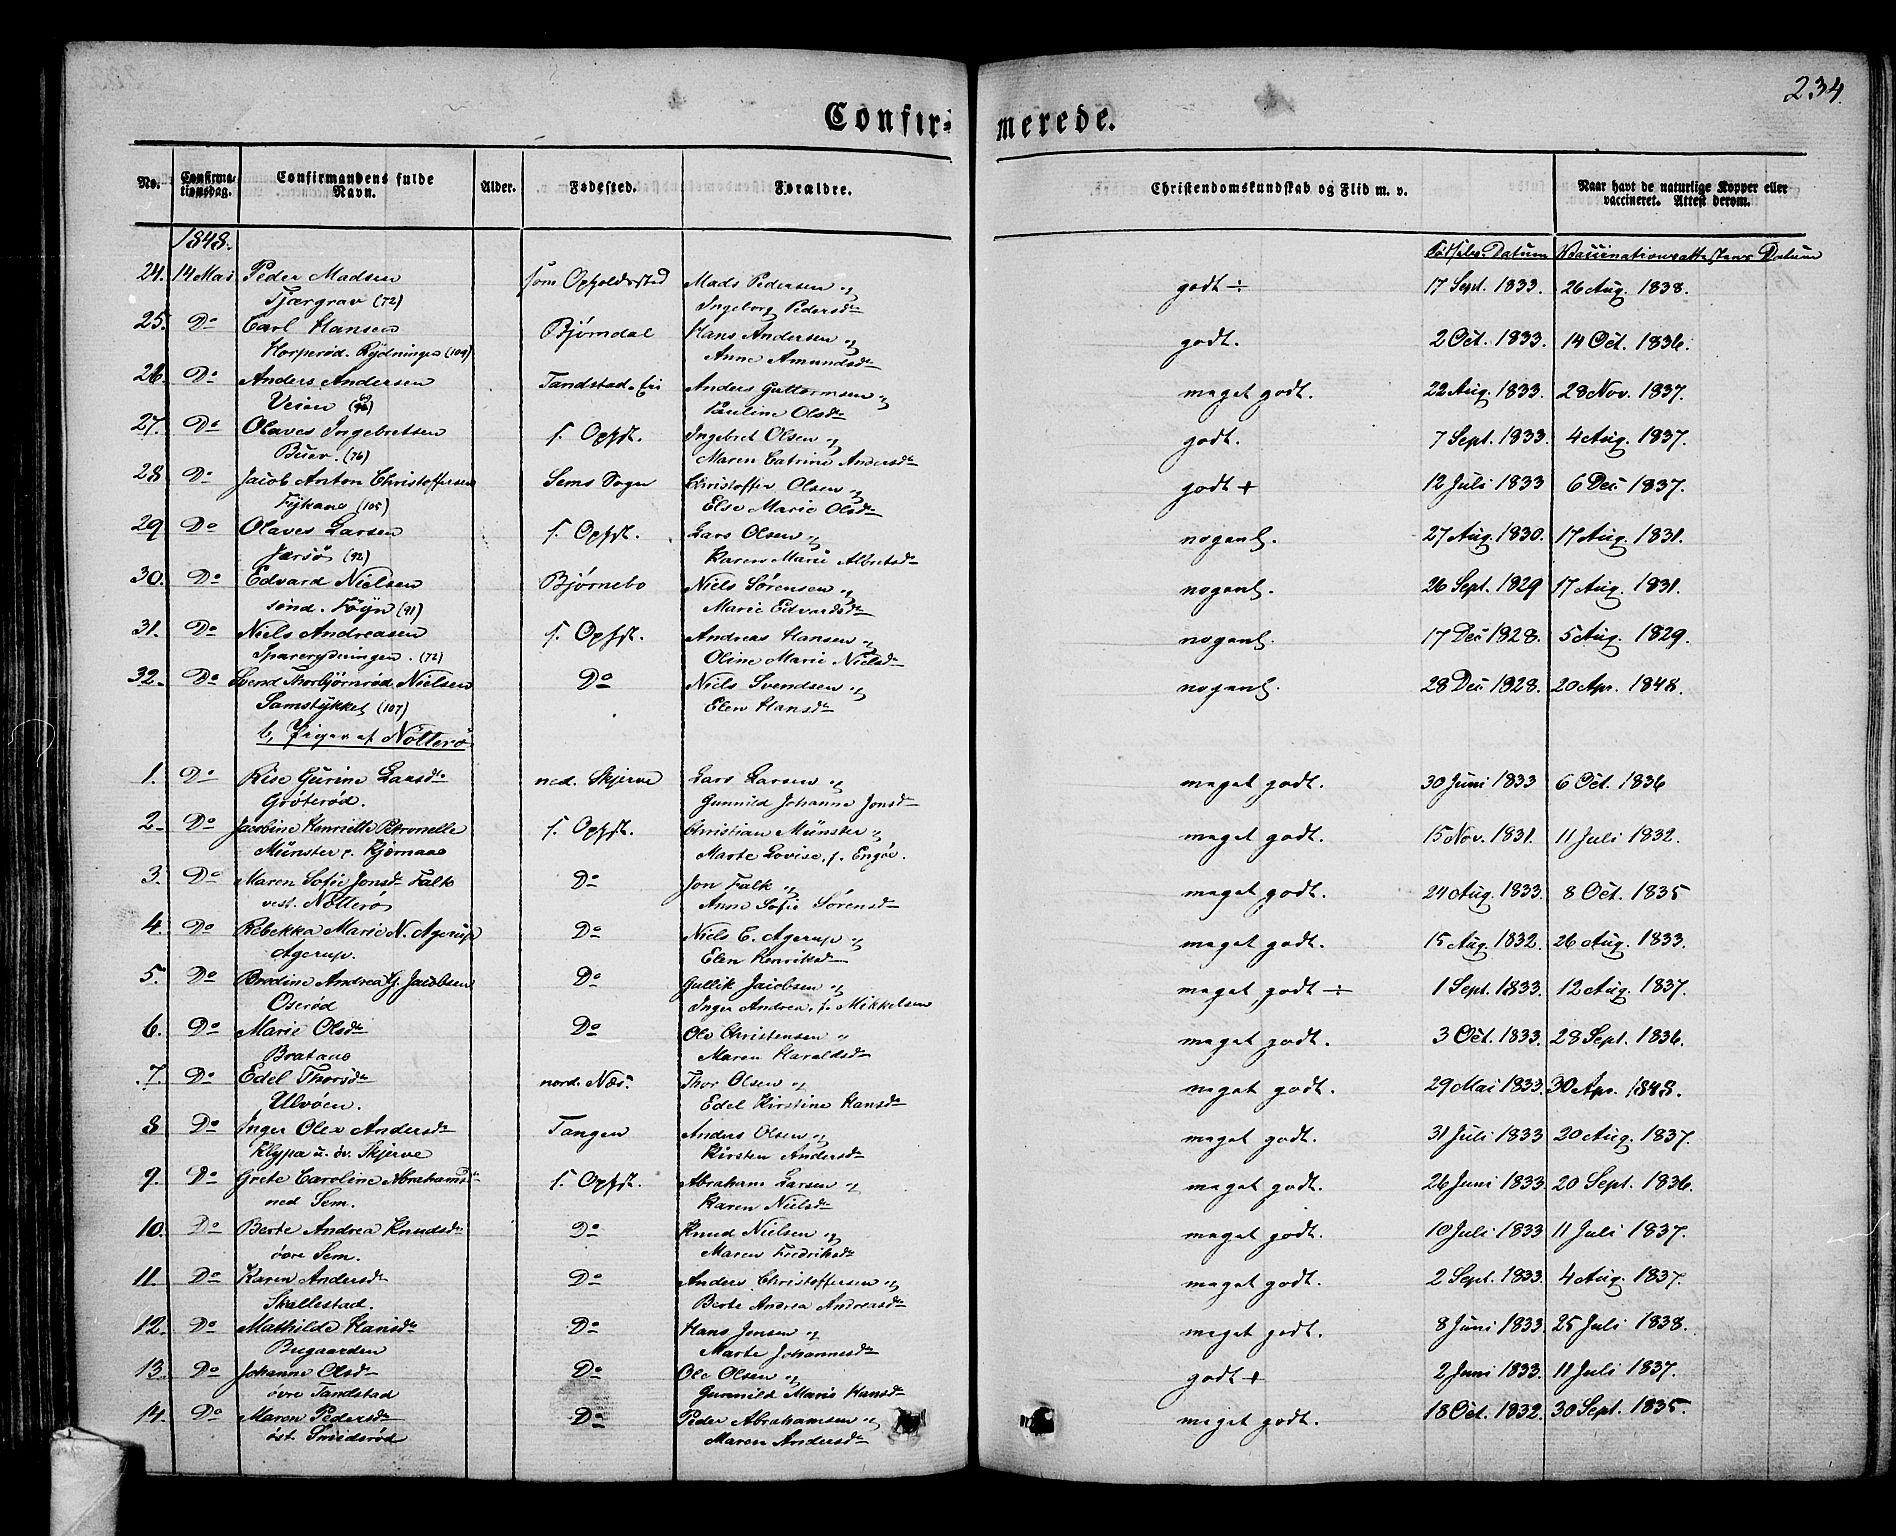 234.
Confirmerede.
No. Confirmationsdag. Confirmandens fulde Navn. Alder. Fødested. Forældre. Christendomskundskab og Flid m. v. Naar havt de naturlige Kopper eller vaccineret. Attest derom.
1848. Fødsels-Datum Vaccinationsattestens Datum
24. 14 Mai Peder Madsen som Opholdssted Mads Pedersen og godt ÷ 17 Sept. 1833. 26 Aug. 1838.
Tjærgrav (72) Ingeborg Pedersdr
25. Do Carl Hansen Bjørndal Hans Andersen og godt. 2 Oct. 1833. 14 Oct. 1836.
Horperød. Rydningen (109) Anne Amundsdr
26. Do Anders Andersen Tandstad-Eie Anders Guttormsen og meget godt. 22 Aug. 1833. 28 Nov. 1837.
Veien Pauline Olsdr
27. Do Olaves Ingebretsen s. OpHst. Ingebret Olsen og godt. 7 Sept. 1833. 4 Aug. 1837.
Buer. (76) Maren Catrine Andersdr
28 Do Jacob Anton Christoffersen Sems Sogn Christoffer Olsen og godt + 12 Juli 1833 6 Dec 1837.
(105) Else Marie Olsdr
29 Do Olaves Larsen s. OpHst. Lars Olsen og nogenl. 27 Aug. 1830. 17 Aug. 1831.
Jærsø (92) Karen Marie Albretsdr
30. Do Edvard Nielsen Bjørnebo Niels Sørensen og nogenl. 26 Sept. 1829 17 Aug. 1831.
sønd. Føyn (91) Marie Edvardsdr
31. Do Niels Andreasen s. OpHst. Andreas Hansen og nogenl. 17 Dec 1828. 5 Aug. 1829.
(72) Oline Marie Nielsdr
32. Do Svend Thorbjørnrød Nielsen Do Niels Svendsen og nogenl. 28 Dec 1828. 20 Apr. 1848.
Samstykket (107) Elen Hansdr
b, Piger af Nøtterø
1. Do Rise Gurine Larsdr ned. Skjerve Lars Larsen og meget godt. 30 Juni 1833 6 Oct. 1836
Grøterød. Gunnild Johanne Jonsdr
2. Do Jacobine Henriette Petronelle s. OpHst. Christian Münster og meget godt. 15 Nov. 1831. 11 Juli 1832.
Münster p. Kjørnaae Marte Lovise, f. Engøe.
3. Do Maren Sofie Jonsdr Falk Do Jon Falk og meget godt. 24 Aug. 1833. 8 Oct. 1835
vest. Nøtterø Anne Sofie Sørensdr
4. Do Rebekka Marie N. Agerup Do Niels C. Agerup og meget godt. 15 Aug. 1832. 26 Aug. 1833.
Agerup. Elen Henriksdr
5. Do Bredine Andrea G. Jacobsen Do Gullik Jacobsen og meget godt ÷ 1 Sept. 1833. 12 Aug. 1837.
Oserød Inger Andrea, f. Mikkelsen
6. Do Marie Olsdr Do Ole Christensen og meget godt. 3 Oct. 1833. 28 Sept. 1836.
Bratane Maren Haraldsdr
7. Do Edel Thorsdr nord. Næs. Thor Olsen og meget godt. 29 Mai 1833. 30 Apr. 1848.
Ulvøen. Edel Kirstine Hansdr
8 Do Inger Olea Andersdr Tangen Anders Olsen og meget godt. 31 Juli 1833 20 Aug. 1837.
Klypa u. öv. Skjerve Kirsten Andersdr
9. Do Grete Caroline Abrahamsdr s. OpHst. Abraham Larsen og meget godt. 26 Juni 1833. 20 Sept. 1836.
ned Sem. Karen Nielsdr
10. Do Berte Andrea Knudsdr Do Knud Nielsen og meget godt. 10 Juli 1833. 11 Juli 1837.
övre Sem. Maren Fredriksdr
11. Do Karen Andersdr Do Anders Christoffersen og meget godt. 2 Sept. 1833. 4 Aug. 1837.
Skallestad. Berte Andrea Andreasdr
12. Do Mathilde Hansdr Do Hans Jensen og meget godt. 8 Juni 1833. 25 Juli 1838.
Bugaarden Marte Johannesdr
13. Do Johanne Olsdr Do Ole Olsen og godt + 2 Juni 1833. 11 Juli 1837.
övre Tandstad Gunnild Marie Hansdr
14. Do Maren Pedersdr Do Peder Abrahamsen og meget godt. 18 Oct. 1832. 30 Sept. 1835.
öst. Smidsrød Maren Andersdr